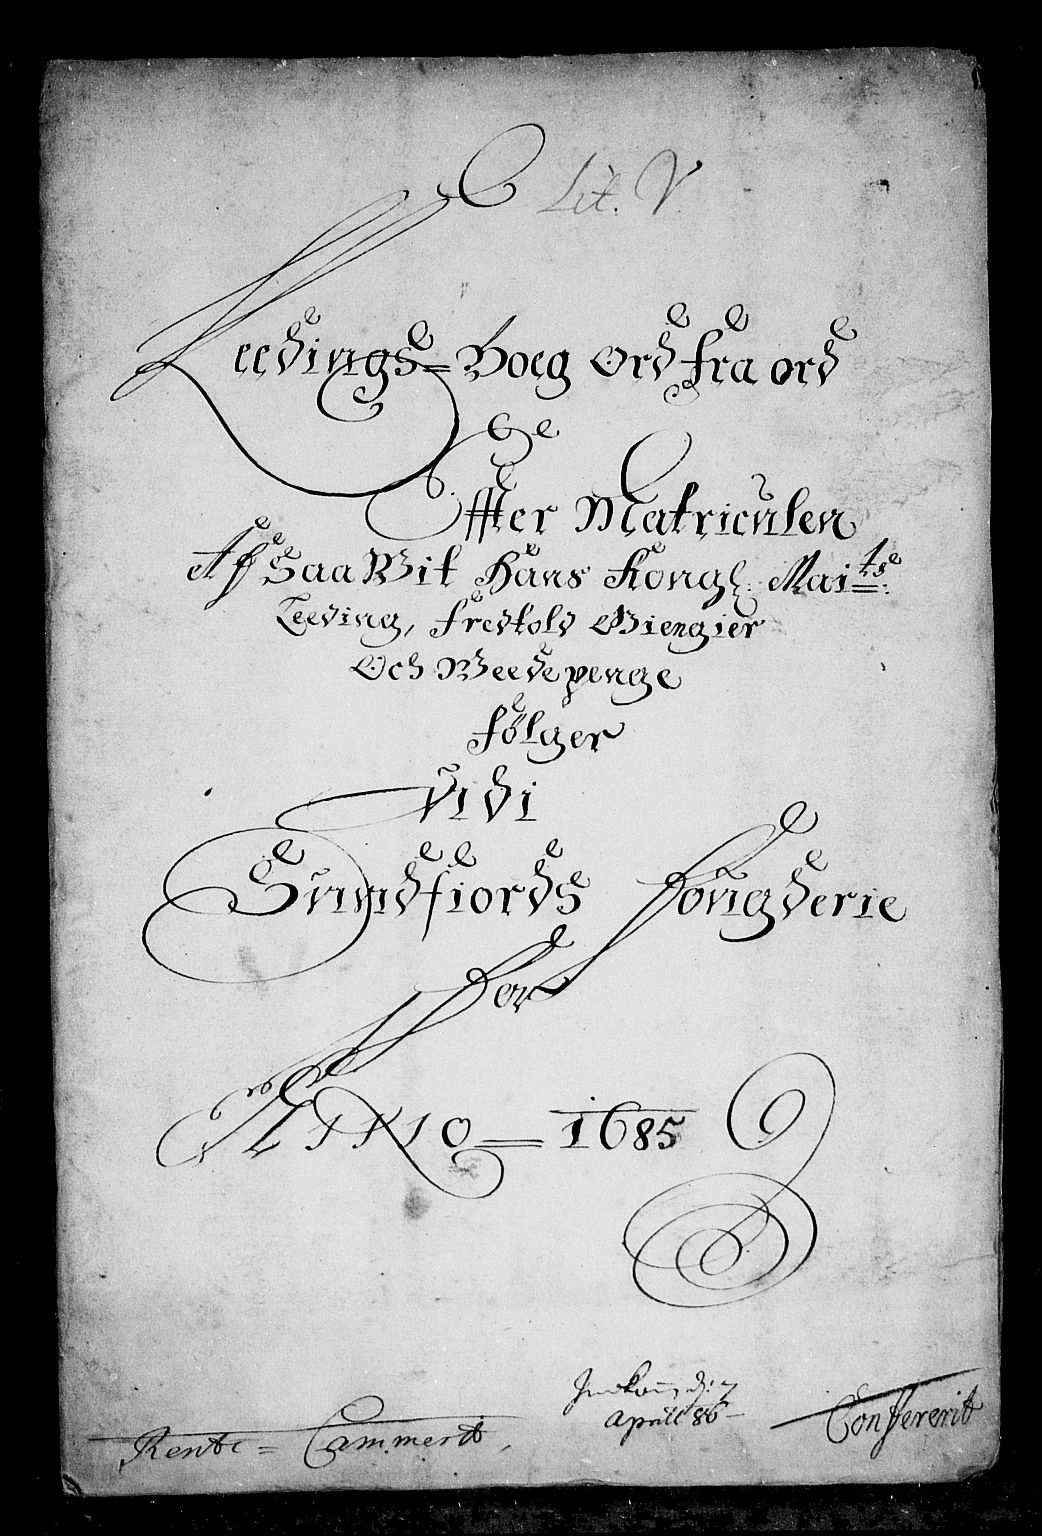 Lit. V.
Leedings= Boeg Ord fra ord
Effter Matriculen
Af Saa Wit Hans Kongl. Maits:
Leeding, Fredtold Giengier
Och Weedepenge
følger
Udi
Sundfiords Fougderie
for
Anno = 1685
Indkom, d: 7
Aprill 86
Rente = Cammerit
Confererit